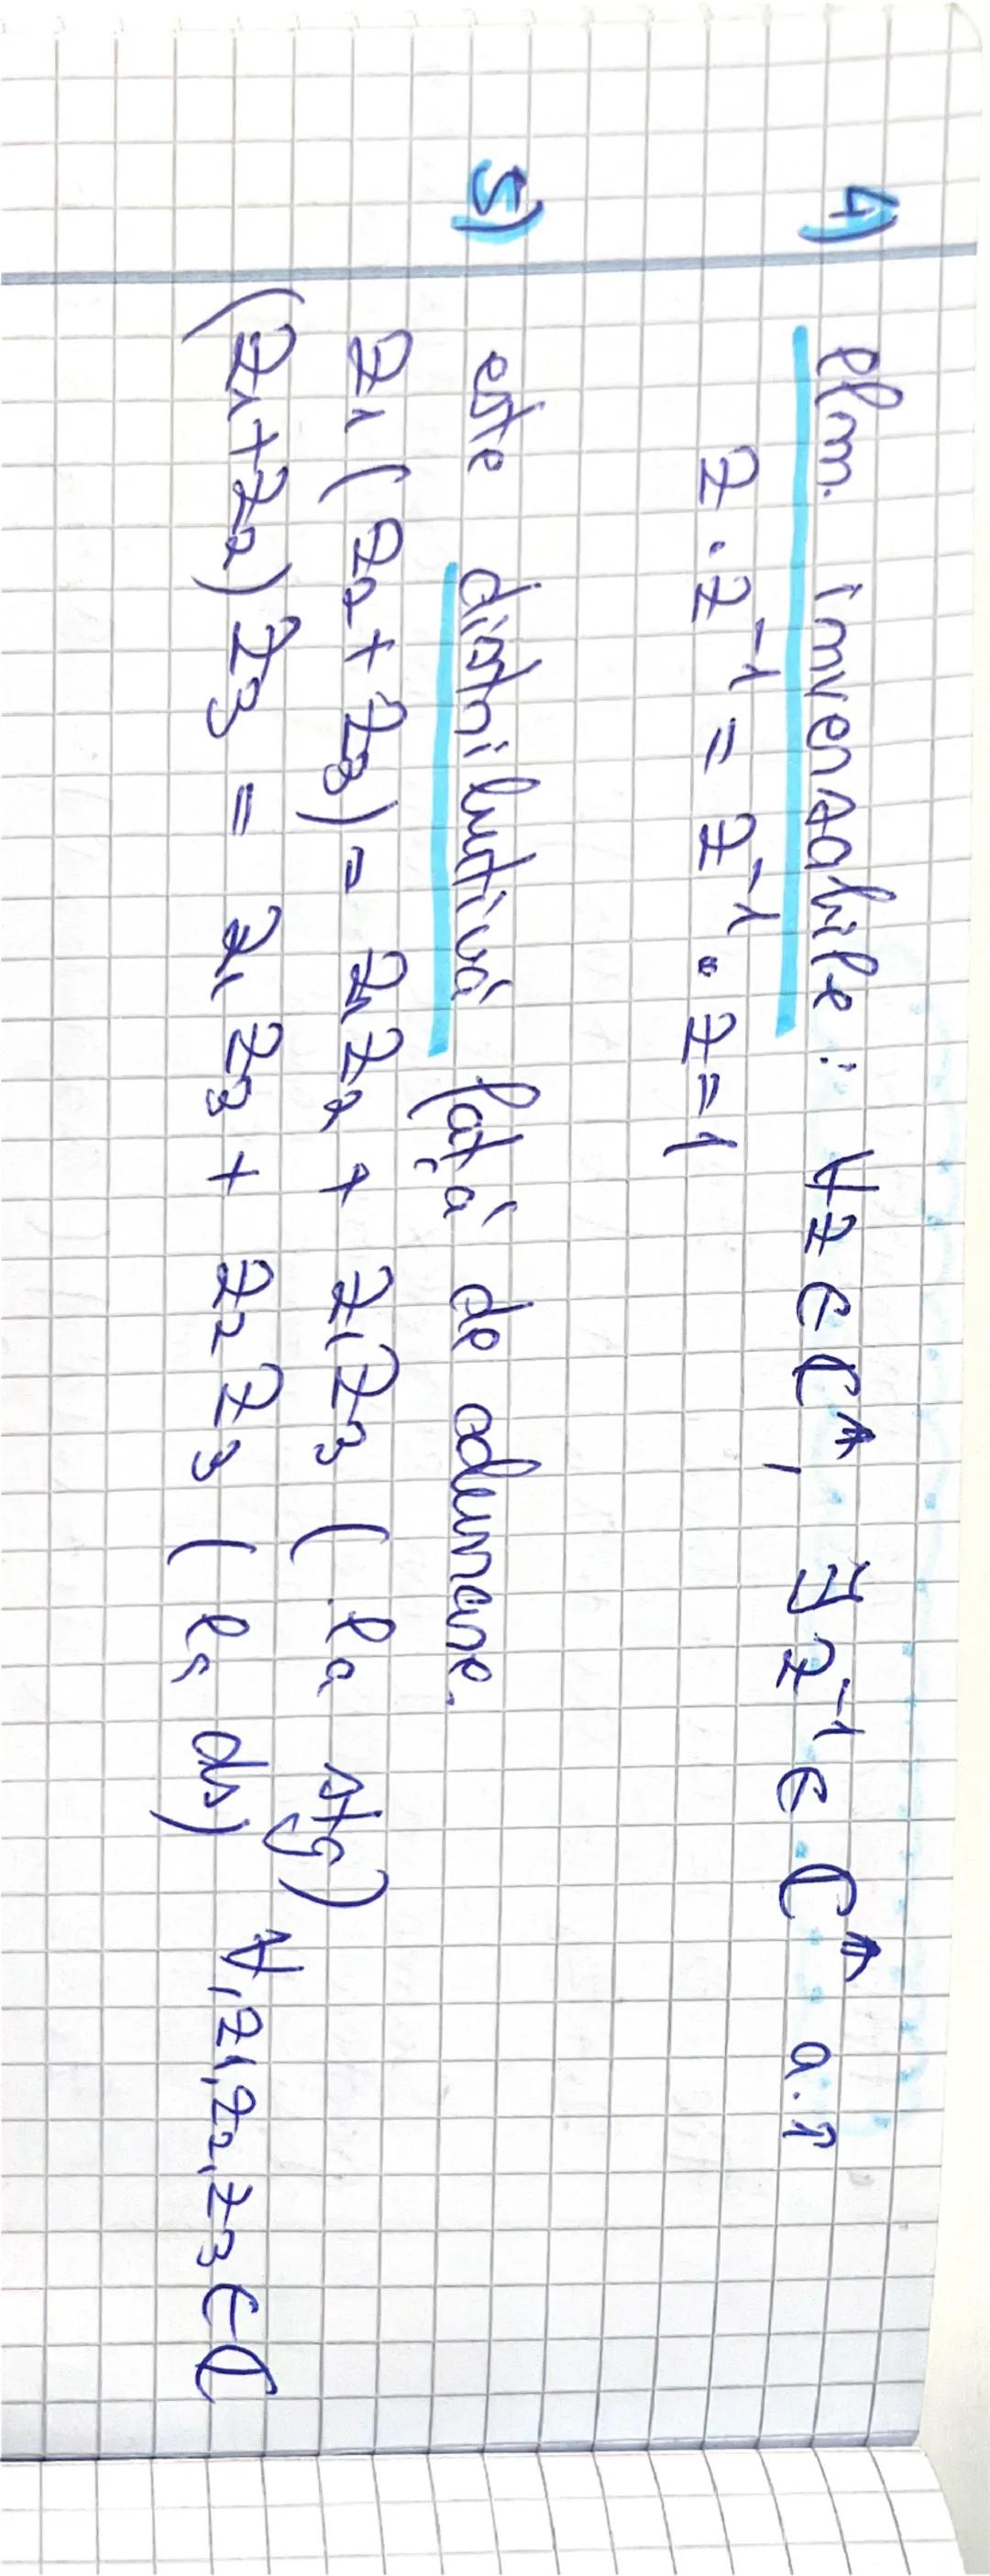 4) elm. inversabile: ∀ z ∈ ℂ*, ∃ z⁻¹ ∈ ℂ* a.î
z · z⁻¹ = z⁻¹ · z = 1
5) este distributivă față de adunare.
z₁ (z₂ + z₃) = z₁z₂ + z₁z₃ (la stg)
(z₁+z₂) z₃ = z₁ z₃ + z₂ z₃ (la dr) ∀, z₁, z₂, z₃ ∈ ℂ